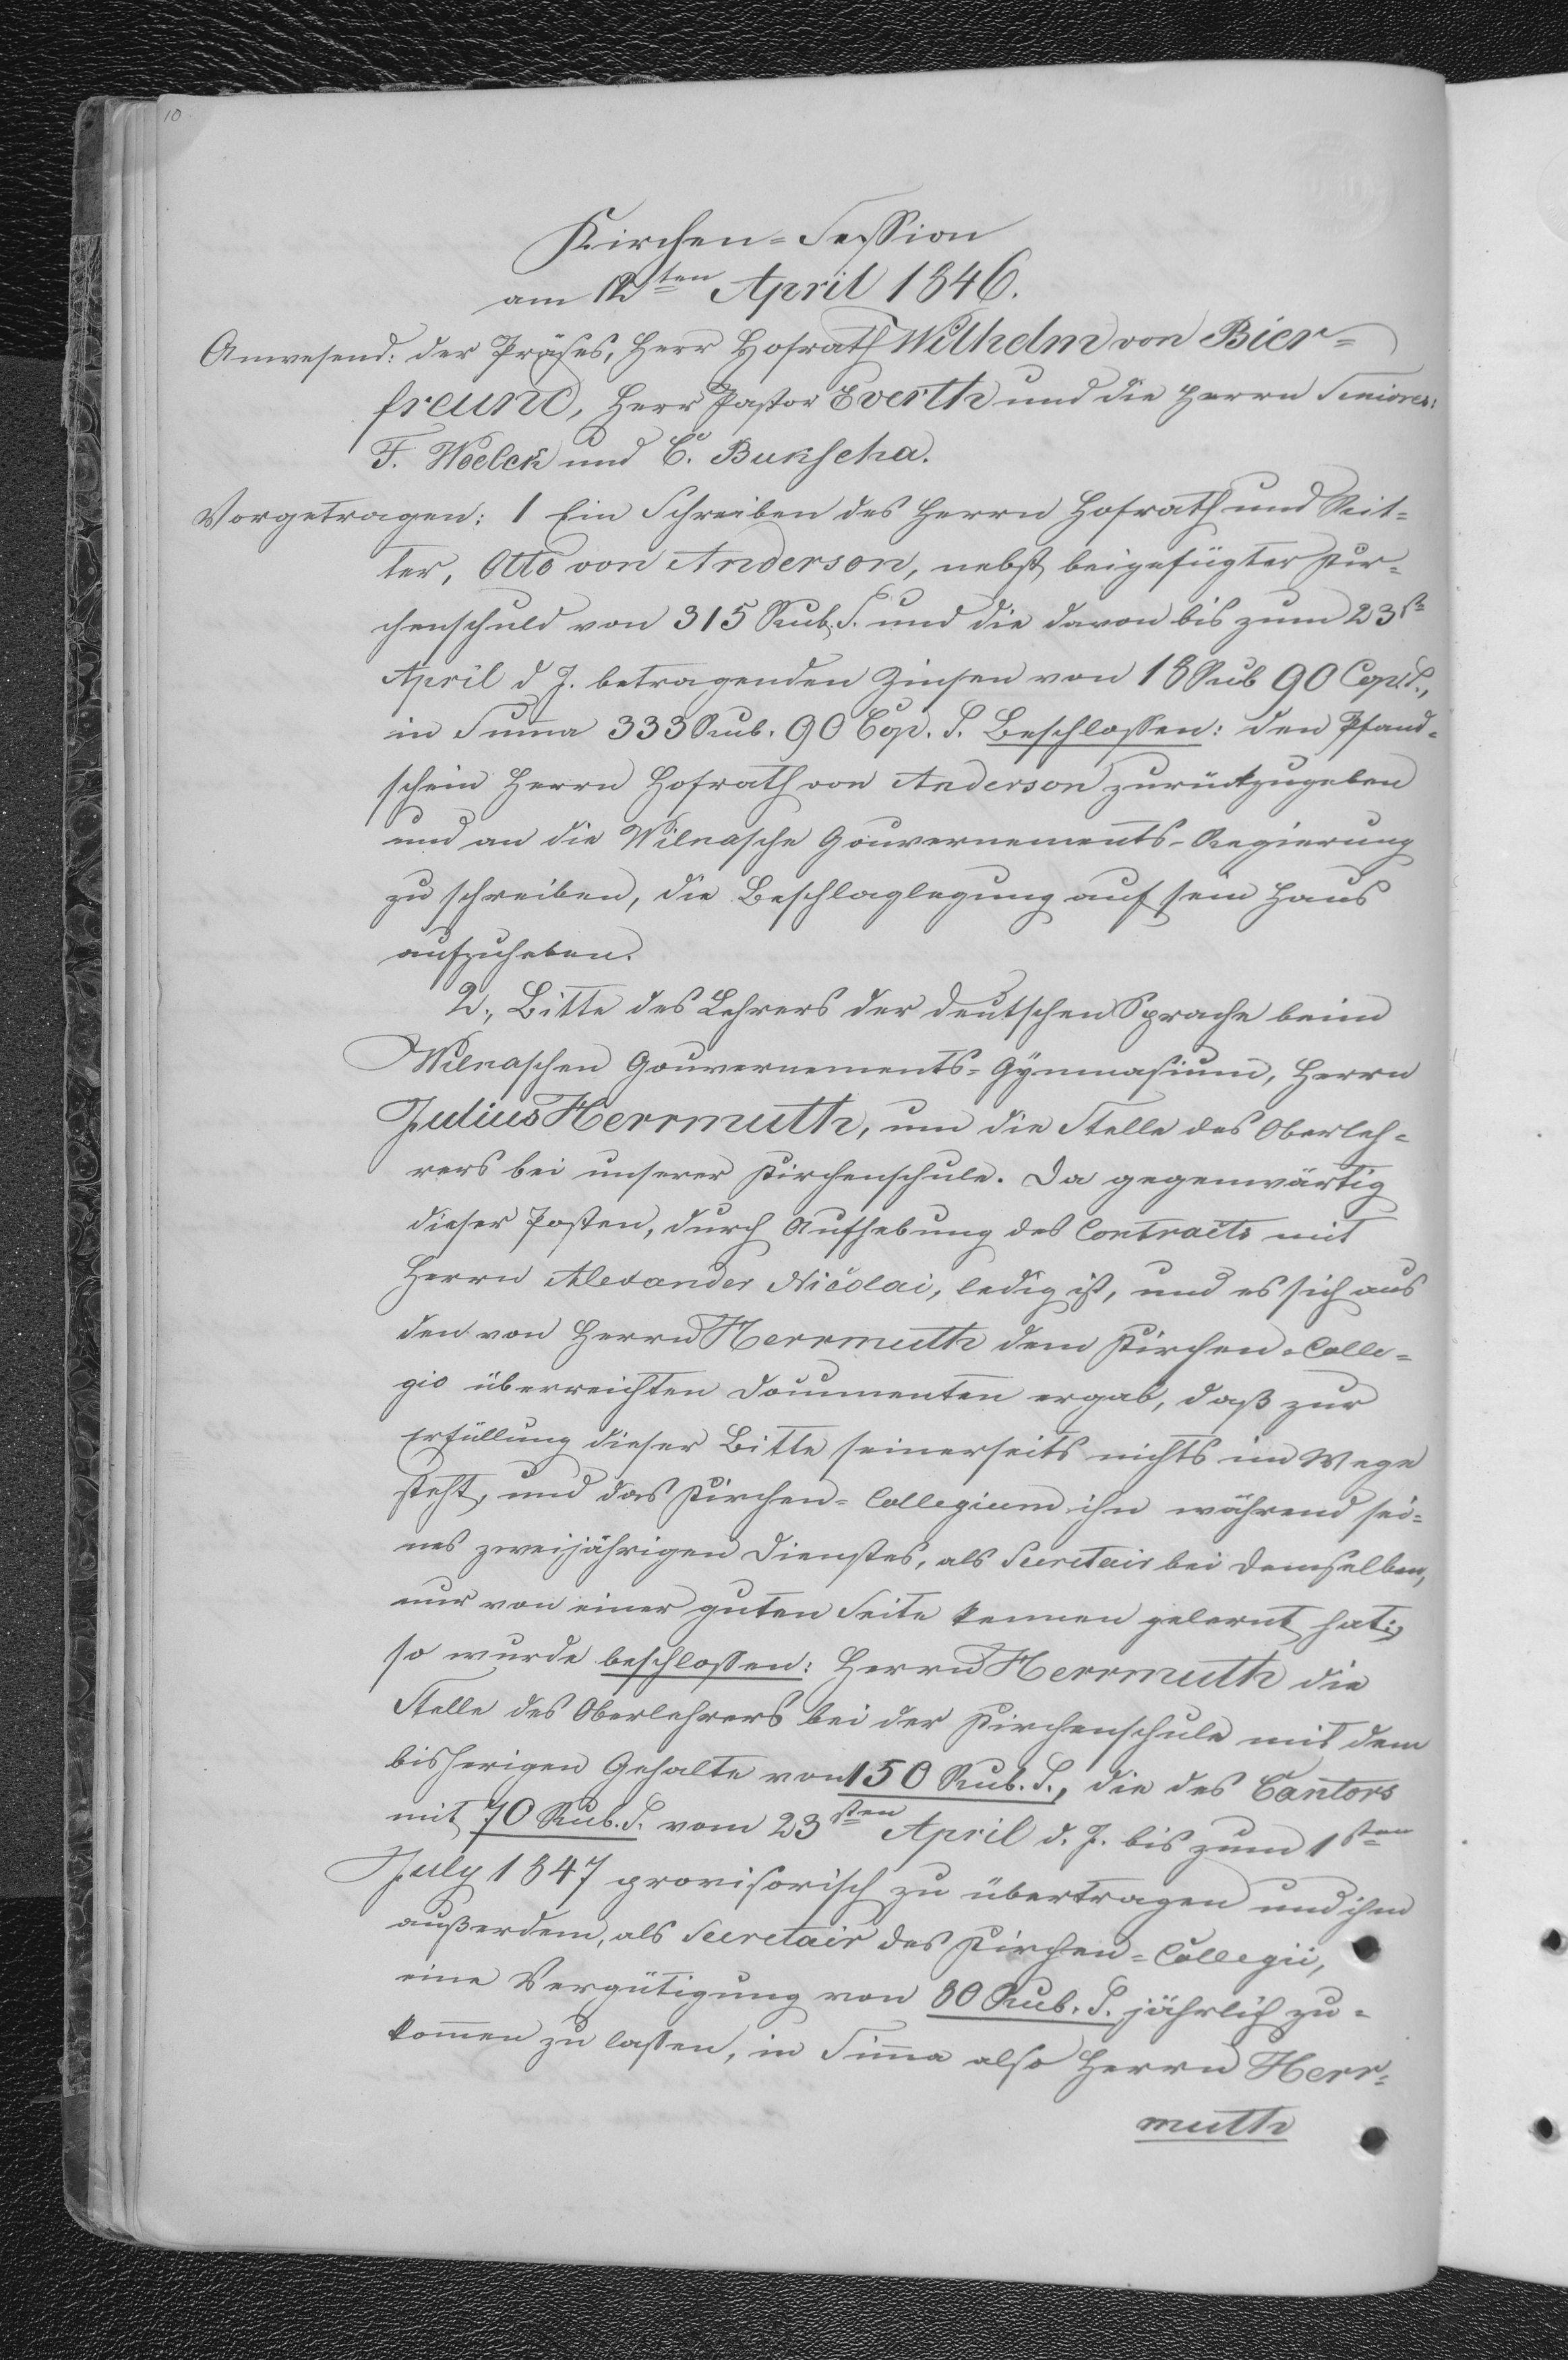 10
Kirchen=Session
am 12ten April 1846.
Anwesend: der Präses, Herr Hofrath Wilhelm von Bier=
freund, Herr Pastor Everth und die Herrn Seniores:
F. Woelck und C. Bukscha.
Vorgetragen: 1 Ein Schreiben des Herrn Hofrath und Rit=
ter, Otto von Anderson, nebst beigefügter Kir=
chenschuld von 315 Rub. S. und die davon bis zum 23st
April d J. betragenden Zinsen von 18 Rub 90 Cop. S.,
in Summa 333 Rub. 90 Cop. S. Beschlossen: den Pfand=
schein Herrn Hofrath von Anderson zurückzugeben
und an die Wilnasche Gouvernements-Regierung
zu schreiben, die Beschlaglegung auf sein Haus
aufzuheben.
2., Bitte des Lehrers der deutschen Sprache beim
Wilnaschen Gouvernements=Gymnasium, Herrn
Julius Herrmuth, um die Stelle des Oberleh=
rers bei unserer Kirchenschule. Da gegenwärtig
dieser Posten, durch Aufhebung des Contracts mit
Herrn Alexander Nicolai, ledig ist, und es sich aus
den von Herrn Herrmuth dem Kirchen=Colle=
gio überreichten Documenten ergab, daß zur
Erfüllung dieser Bitte seinerseits nichts im Wege
steht, und das Kirchen=Collegium ihn während sei=
nes zweijährigen Dienstes, als Secretair bei demselben,
nur von einer guten Seite kennen gelernt hat:
so wurde beschlossen: Herrn Herrmuth die
Stelle des Oberlehrers bei der Kirchenschule mit dem
bisherigen Gehalte von 150 Rub. S., die des Cantors
mit 70 Rub. S. vom 23sten April d. J. bis zum 1sten
July 1847 provisorisch zu übertragen und ihm
außerdem, als Secretair des Kirchen=Collegii,
eine Vergütigung von 80 Rub. S. jährlich zu=
kommen zu lassen, in Summa also Herrn Herr=
muth